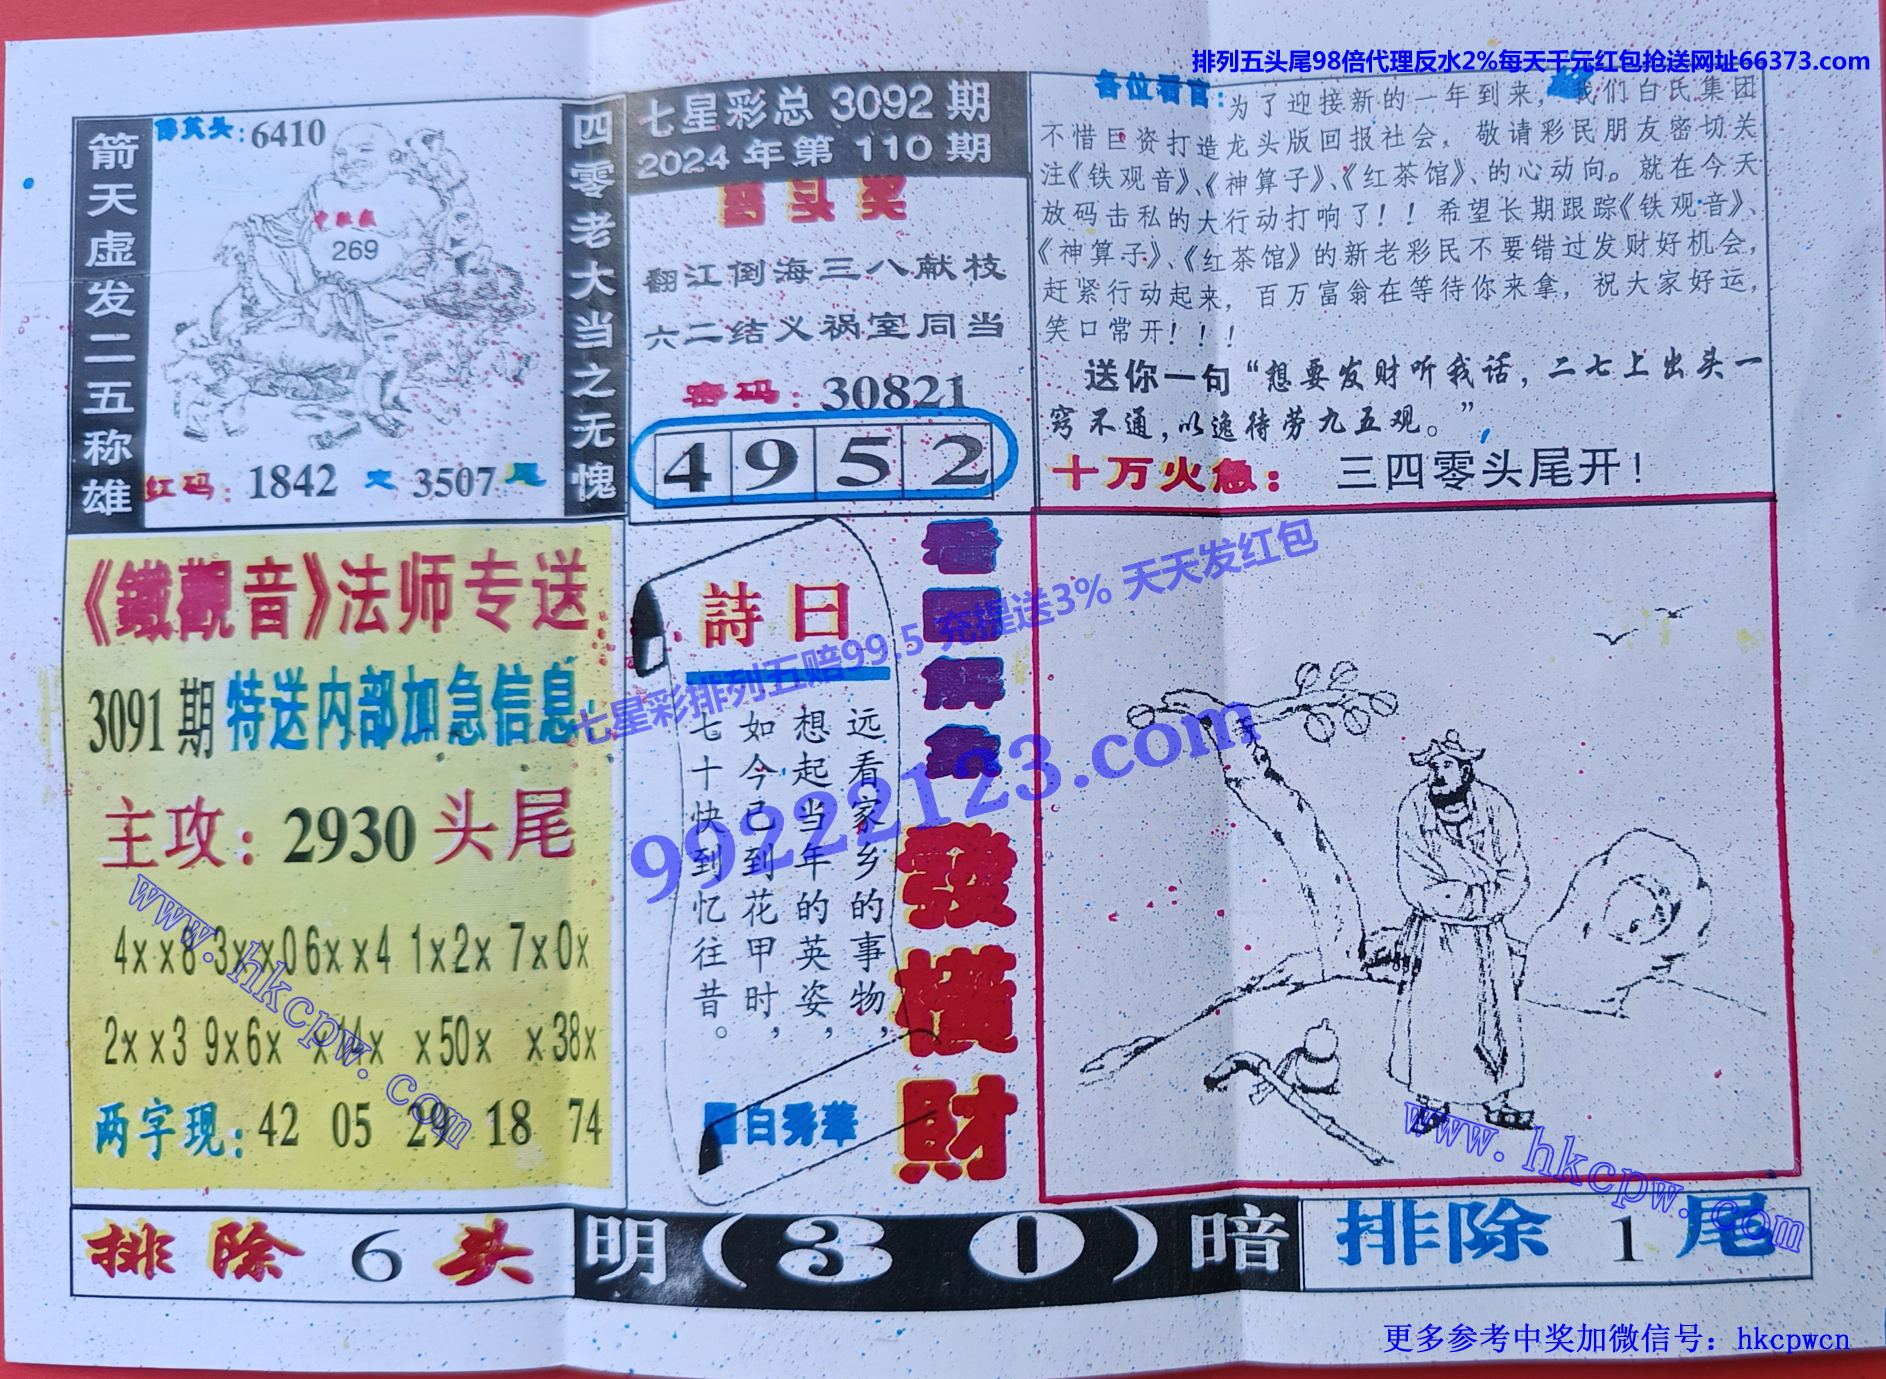 排列五头尾98倍代理反水2%每天千元红包抢送网址66373.com
箭天虚发二五称雄
6410
269
红码：1842 定 3507 尾
四零老大当之无愧
七星彩总 3092 期
2024 年第 110 期
翻江倒海三八献枝
六二结义祸室同当
密码：30821
4 9 5 2
各位看官：为了迎接新的一年到来，我们白氏集团
不惜巨资打造龙头版回报社会，敬请彩民朋友密切关
注《铁观音》、《神算子》、《红茶馆》、的心动向。就在今天
放码击私的大行动打响了！！希望长期跟踪《铁观音》、
《神算子》、《红茶馆》的新老彩民不要错过发财好机会，
赶紧行动起来，百万富翁在等待你来拿，祝大家好运，
笑口常开！！！
送你一句“想要发财听我话，二七上出头一
窍不通，以逸待劳九五观。”
十万火急：三四零头尾开！
《鐵觀音》法师专送
3091 期 特送内部加急信息
主攻：2930 头尾
4××8 3××0 6××4 1×2× 7×0×
2××3 9×6× ×14× ×50× ×38×
两字现：42 05 29 18 74
詩曰
远看家乡的事物，
想起当年的英姿，
如今已到花甲时，
七十快到忆往昔。
看图解象
發橫財
七星彩排列五赔99.5 充提送3% 天天发红包
99222123.com
www.hkcpw.com
www.hkcpw.com
排除 6 头
明（3 0）暗
排除 1 尾
更多参考中奖加微信号：hkcpwcn